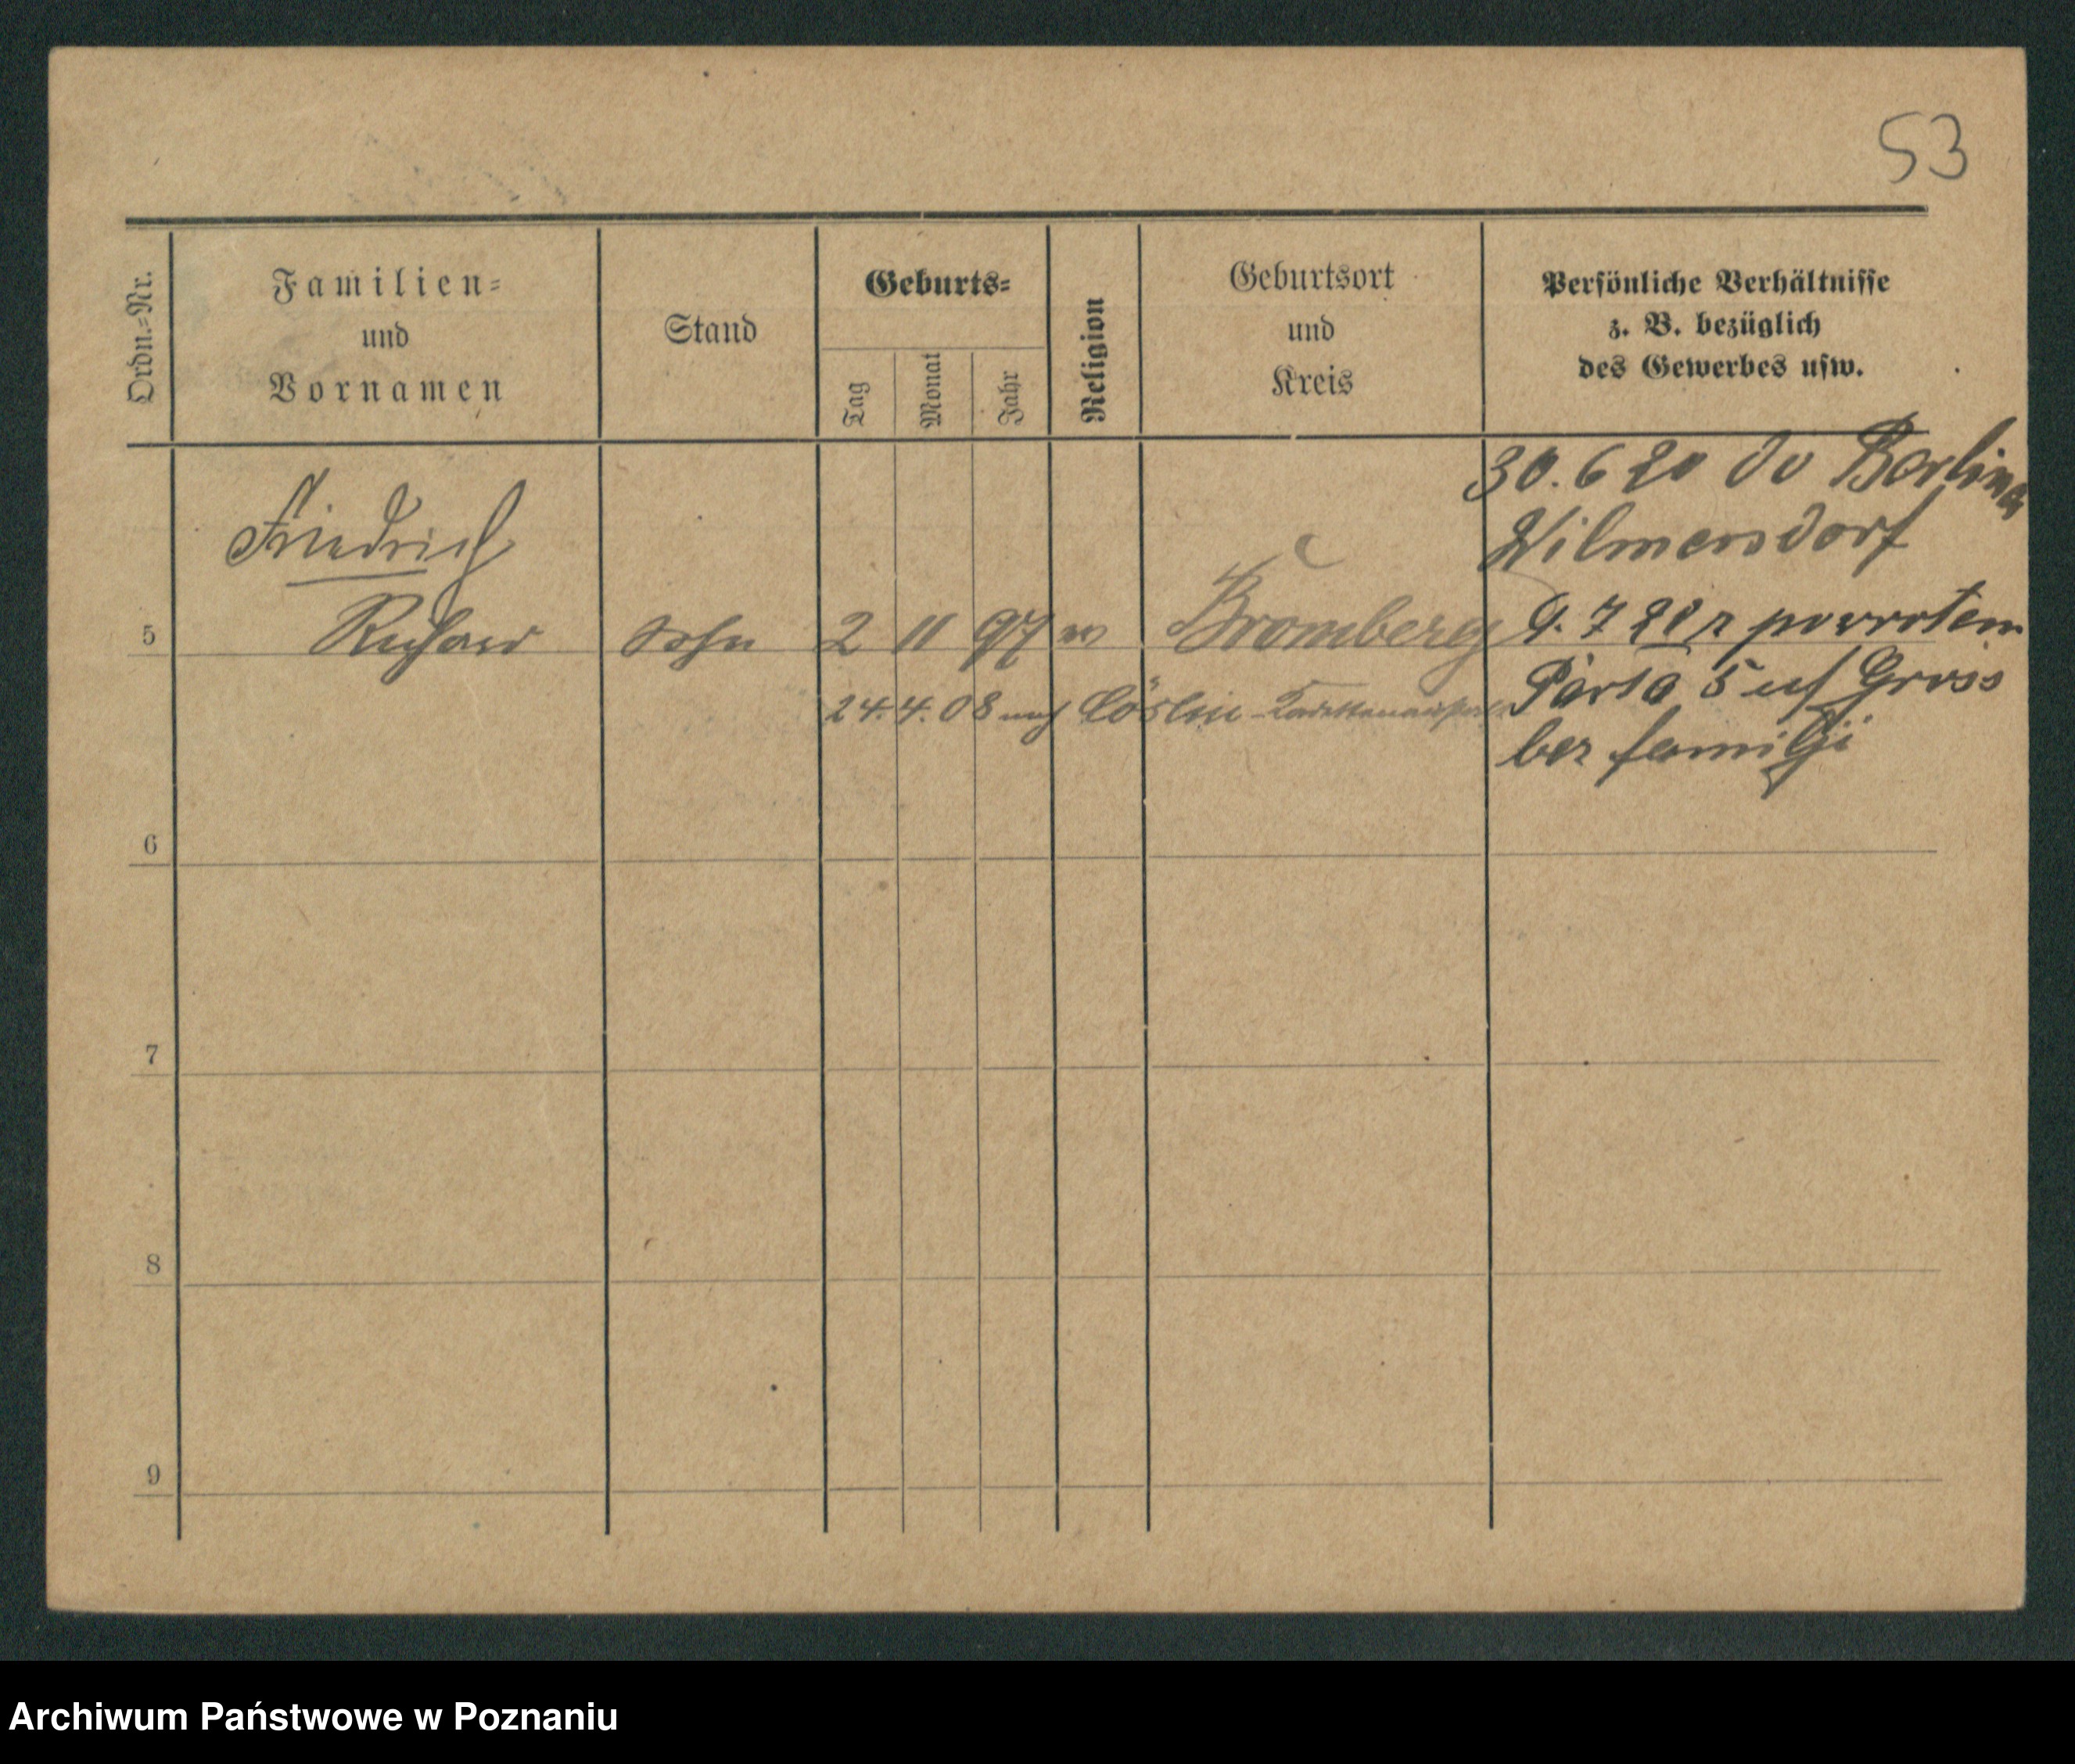 53
Ordn.-Nr.
Familien-
und
Vornamen
Stand
Geburts-
Tag
Monat
Jahr
Religion
Geburtsort
und
Kreis
Persönliche Verhältnisse
z. B. bezüglich
des Gewerbes usw.
30.6 20 do Berlina
Wilmersdorf
Friedrich
5 Richard Sohn 2 11 97 Bromberg 9. 7 20 z powrotem
24. 4. 08 nach Cöslin - Kadettenanstalt
5 Gross
bez familji
6
7
8
9
Archiwum Państwowe w Poznaniu